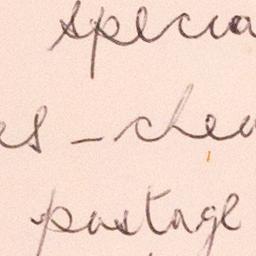 specia
es - chea
postage